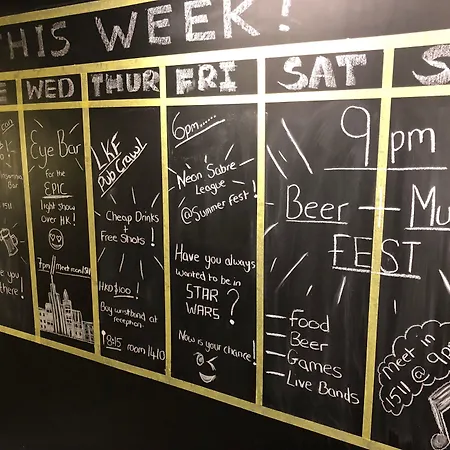 THIS WEEK!
WED
THUR
FRI
SAT
S
Bar
1511
you
there!
Eye Bar
for the
EPIC
light show
Over HK!
7pm/meet room 1511
LKF
Pub Crawl
Cheap Drinks
+
Free Shots!
HKD $100!
Buy wristband at
reception
8:15 room 1410
6pm......
Neon Sabre
League
@Summer Fest!
Have you always
wanted to be in
STAR
WARS?
Now is your chance!
9pm
Beer - Mu
FEST
- Food
- Beer
- Games
- Live Bands
meet in
1511 @ 9pm